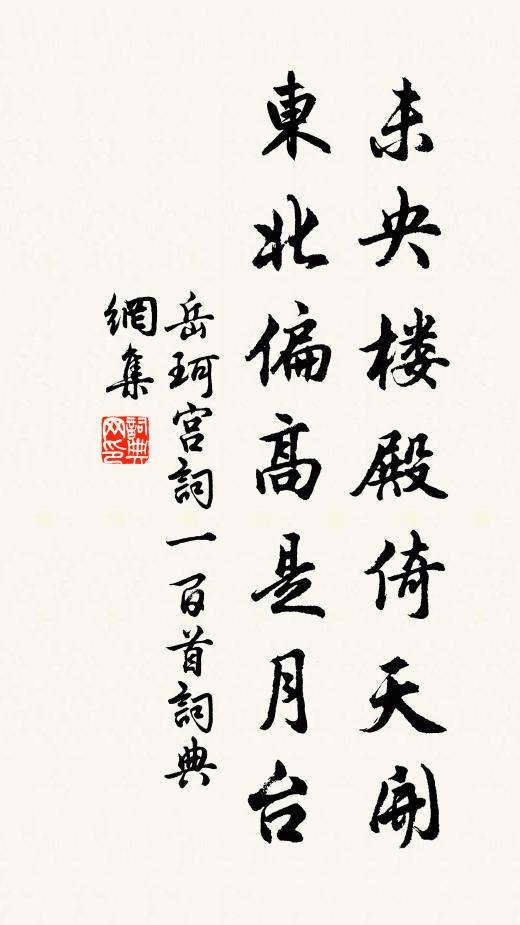 未央楼殿倚天開
東北偏高是月台
岳珂宫詞一百首詞典
網集
詞典网印